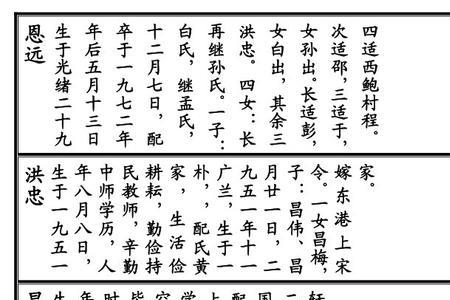 恩远
生于光绪二十九
年后五月十三日
卒于一九七二年
十二月七日，配
白氏，继孟氏，
再继孙氏。一子：
洪忠。四女：长
女白出，其余三
女孙出。长适彭，
次适邵，三适于，
四适西鲍村程。
洪忠
生于一九五一
年八月八日，
中师学历，人
民教师，辛勤
耕耘，勤俭持
家，生活俭
朴，，配氏黄
广兰，生于一
九五一年十一
月廿一日，二
子：昌伟、昌
令。一女昌梅，
嫁东港上宋
家。